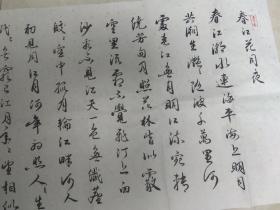 春江花月夜
春江潮水連海平海上明月
共潮生灩〻随波千萬里何
處春江無月明江流宛轉
繞芳甸月照花林皆似霰
空里流霜不覺飛汀上白
沙看不見江天一色無纖塵
皎〻空中孤月輪江畔何人
初見月江月何年初照人〻生
代〻無窮已江月年〻望相似